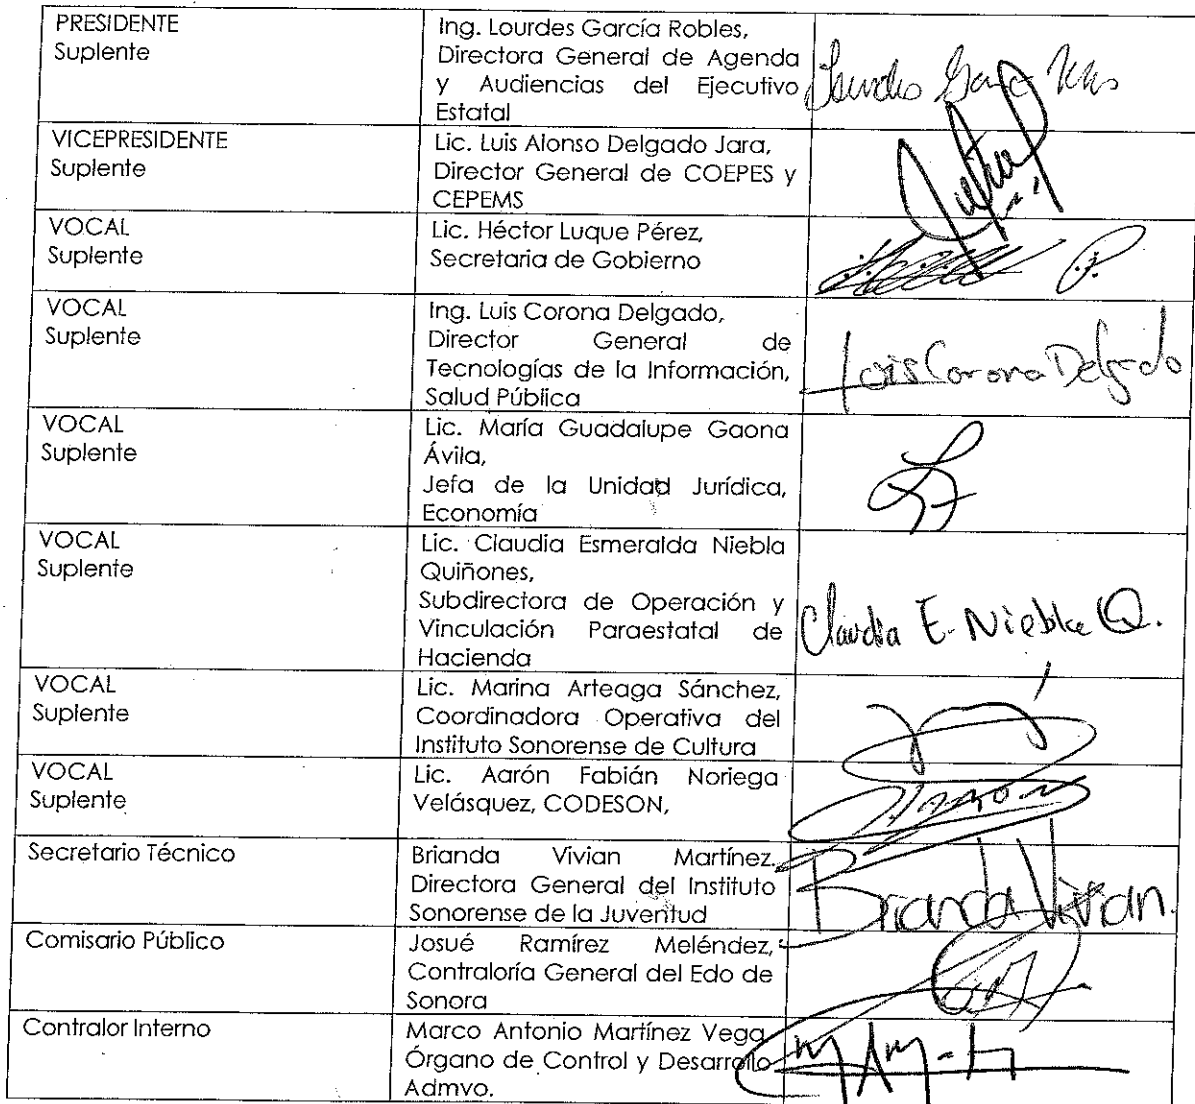 PRESIDENTE
Suplente
Ing. Lourdes García Robles,
Directora General de Agenda
y Audiencias del Ejecutivo
Estatal
Lourdes
VICEPRESIDENTE
Suplente
Lic. Luis Alonso Delgado Jara,
Director General de COEPES y
CEPEMS
VOCAL
Suplente
Lic. Héctor Luque Pérez,
Secretaria de Gobierno
VOCAL
Suplente
Ing. Luis Corona Delgado,
Director General de
Tecnologías de la Información,
Salud Pública
Luis Corona Delgado
VOCAL
Suplente
Lic. María Guadalupe Gaona
Ávila,
Jefa de la Unidad Jurídica,
Economía
VOCAL
Suplente
Lic. Claudia Esmeralda Niebla
Quiñones,
Subdirectora de Operación y
Vinculación Paraestatal de
Hacienda
Claudia E. Niebla Q.
VOCAL
Suplente
Lic. Marina Arteaga Sánchez,
Coordinadora Operativa del
Instituto Sonorense de Cultura
VOCAL
Suplente
Lic. Aarón Fabián Noriega
Velásquez, CODESON,
Secretario Técnico
Brianda Vivian Martínez.
Directora General del Instituto
Sonorense de la Juventud
Brianda Vivian.
Comisario Público
Josué Ramírez Meléndez,
Contraloría General del Edo de
Sonora
Contralor Interno
Marco Antonio Martínez Vega
Órgano de Control y Desarrollo
Admvo.